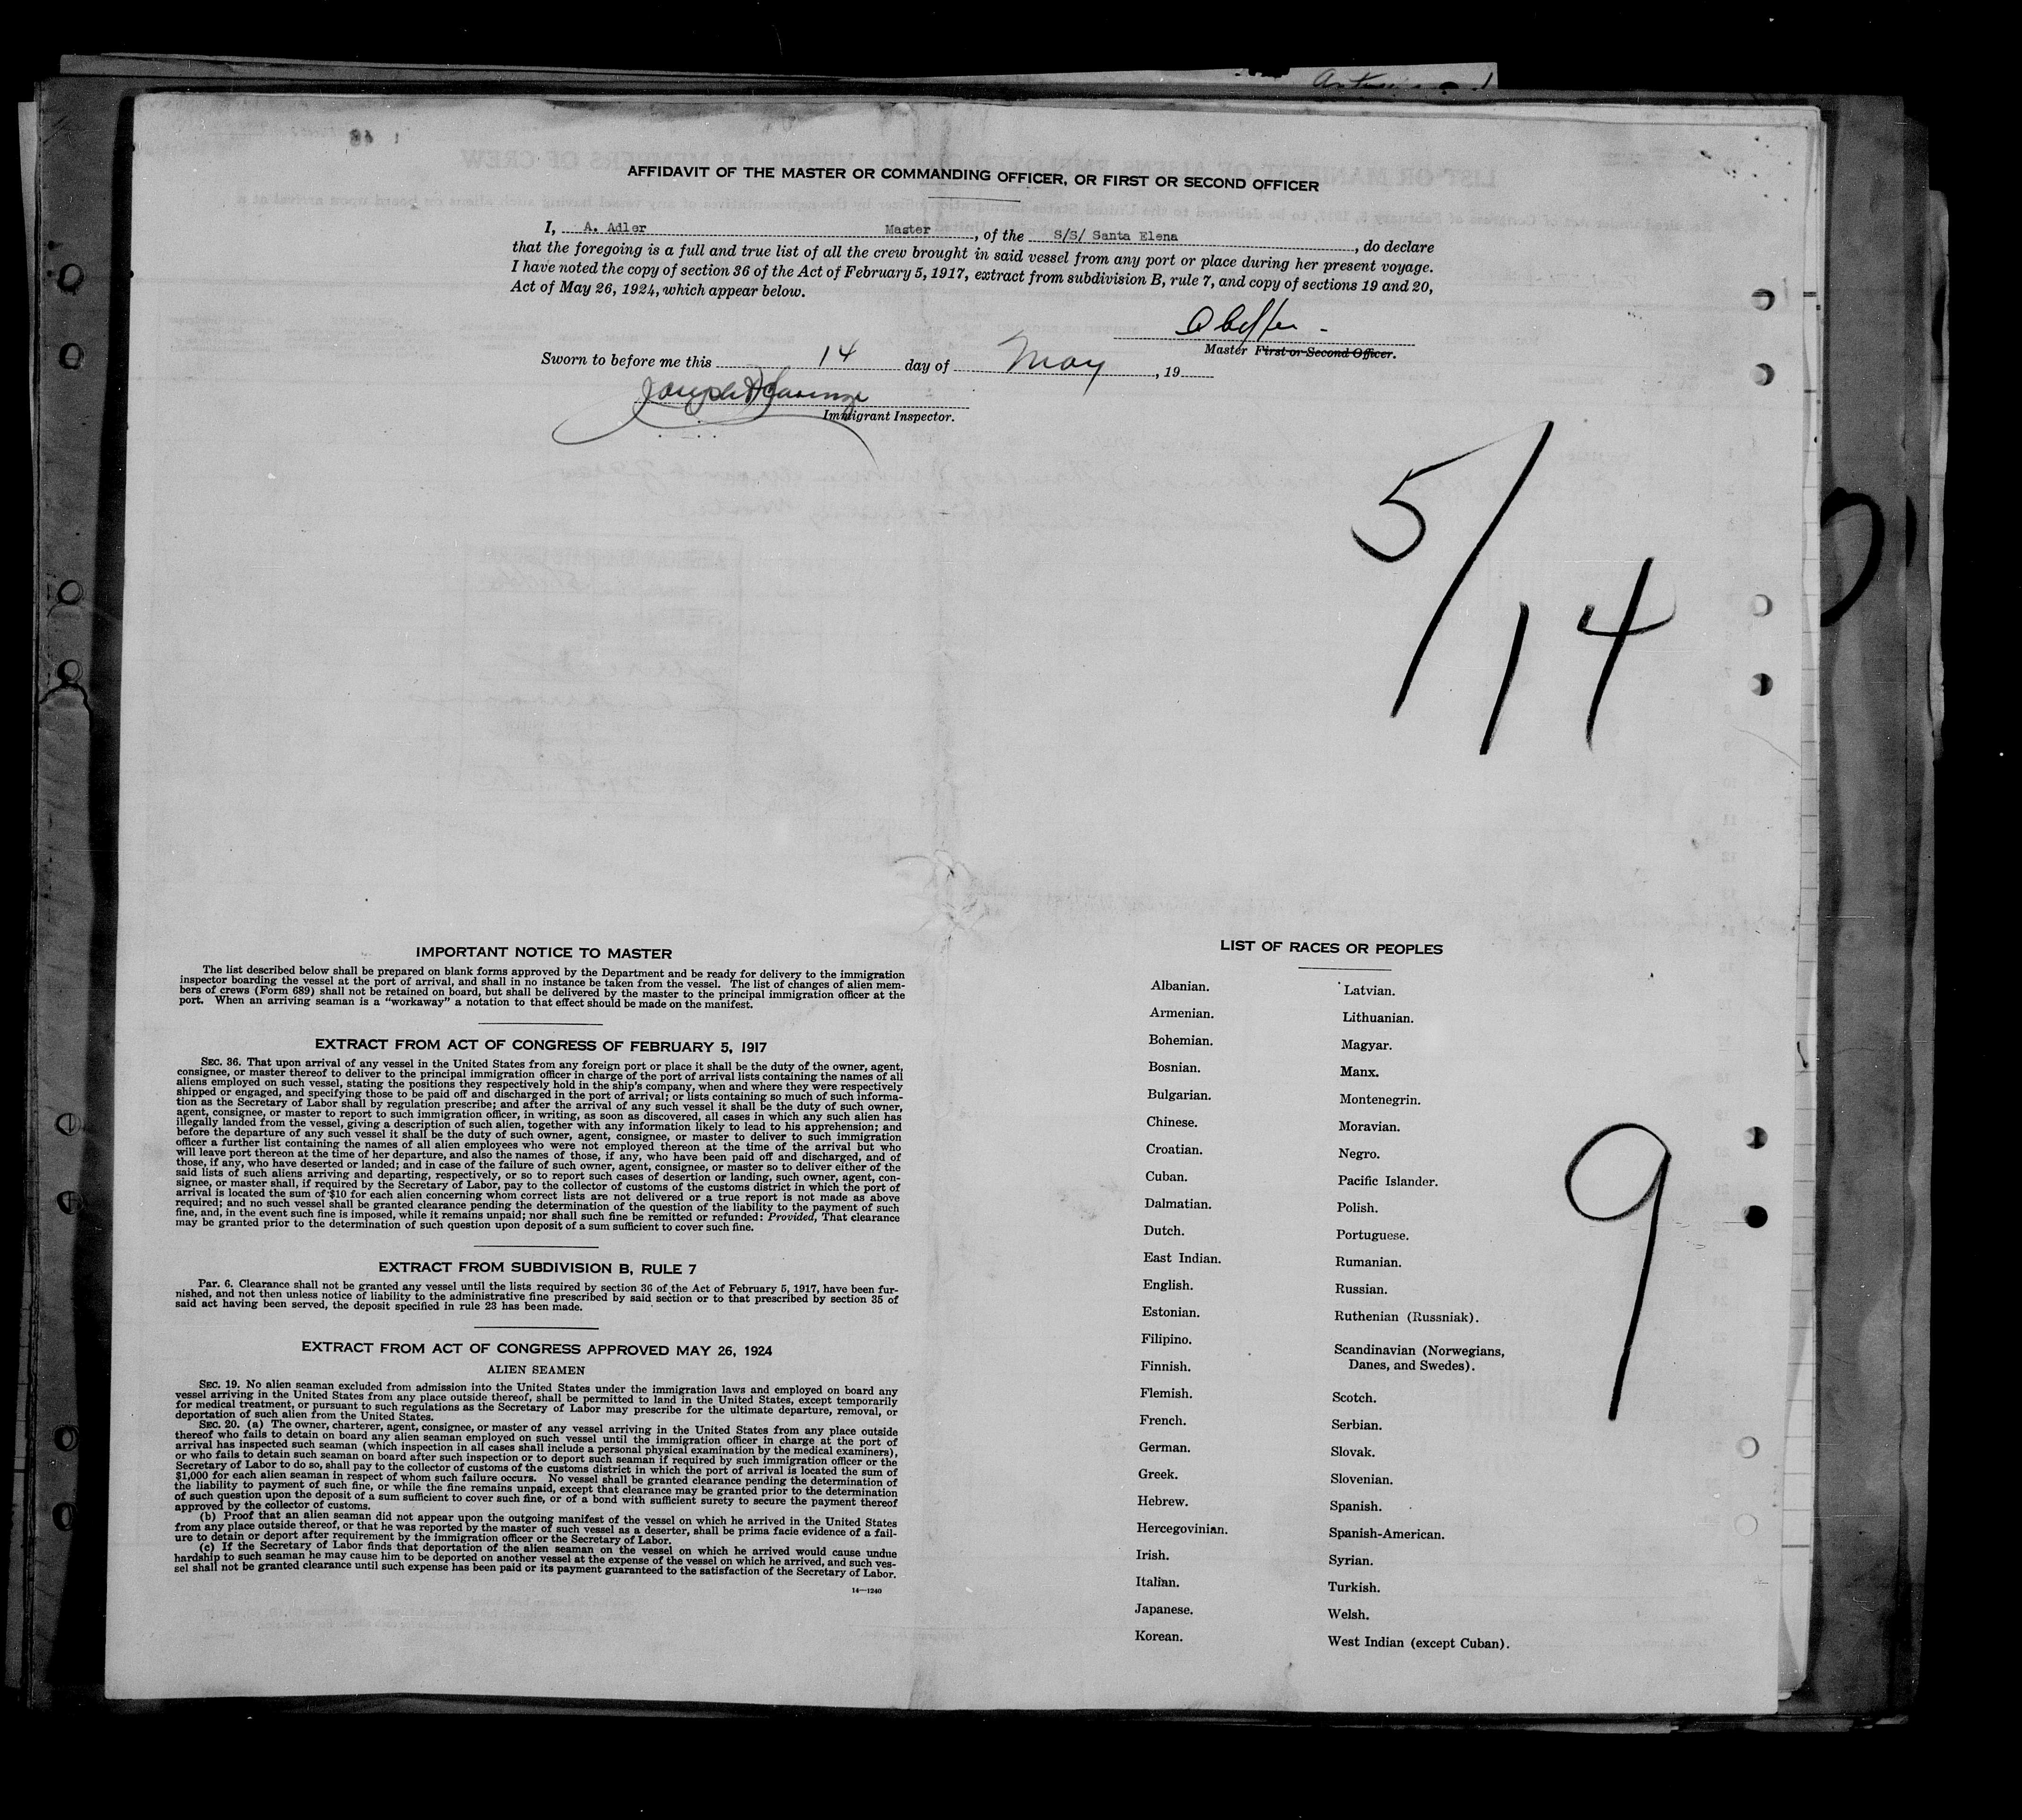 AFFIDAVIT OF THE MASTER OR COMMANDING OFFICER, OR FIRST OR SECOND OFFICER
I, A. Adler Master, of the S/S/ Santa Elena, do declare
that the foregoing is a full and true list of all the crew brought in said vessel from any port or place during her present voyage.
I have noted the copy of section 36 of the Act of February 5, 1917, extract from subdivision B, rule 7, and copy of sections 19 and 20,
Act of May 26, 1924, which appear below.
Master First or Second Officer.
Sworn to before me this 14 day of May, 19
Immigrant Inspector.
5/14
IMPORTANT NOTICE TO MASTER
The list described below shall be prepared on blank forms approved by the Department and be ready for delivery to the immigration
inspector boarding the vessel at the port of arrival, and shall in no instance be taken from the vessel. The list of changes of alien mem-
bers of crews (Form 689) shall not be retained on board, but shall be delivered by the master to the principal immigration officer at the
port. When an arriving seaman is a "workaway" a notation to that effect should be made on the manifest.
EXTRACT FROM ACT OF CONGRESS OF FEBRUARY 5, 1917
SEC. 36. That upon arrival of any vessel in the United States from any foreign port or place it shall be the duty of the owner, agent,
consignee, or master thereof to deliver to the principal immigration officer in charge of the port of arrival lists containing the names of all
aliens employed on such vessel, stating the positions they respectively hold in the ship's company, when and where they were respectively
shipped or engaged, and specifying those to be paid off and discharged in the port of arrival; or lists containing so much of such informa-
tion as the Secretary of Labor shall by regulation prescribe; and after the arrival of any such vessel it shall be the duty of such owner,
agent, consignee, or master to report to such immigration officer, in writing, as soon as discovered, all cases in which any such alien has
illegally landed from the vessel, giving a description of such alien, together with any information likely to lead to his apprehension; and
before the departure of any such vessel it shall be the duty of such owner, agent, consignee, or master to deliver to such immigration
officer a further list containing the names of all alien employees who were not employed thereon at the time of the arrival but who
will leave port thereon at the time of her departure, and also the names of those, if any, who have been paid off and discharged, and of
those, if any, who have deserted or landed; and in case of the failure of such owner, agent, consignee, or master so to deliver either of the
said lists of such aliens arriving and departing, respectively, or so to report such cases of desertion or landing, such owner, agent, con-
signee, or master shall, if required by the Secretary of Labor, pay to the collector of customs of the customs district in which the port of
arrival is located the sum of $10 for each alien concerning whom correct lists are not delivered or a true report is not made as above
required; and no such vessel shall be granted clearance pending the determination of the question of the liability to the payment of such
fine, and, in the event such fine is imposed, while it remains unpaid; nor shall such fine be remitted or refunded: Provided, That clearance
may be granted prior to the determination of such question upon deposit of a sum sufficient to cover such fine.
EXTRACT FROM SUBDIVISION B, RULE 7
Par. 6. Clearance shall not be granted any vessel until the lists required by section 36 of the Act of February 5, 1917, have been fur-
nished, and not then unless notice of liability to the administrative fine prescribed by said section or to that prescribed by section 35 of
said act having been served, the deposit specified in rule 23 has been made.
EXTRACT FROM ACT OF CONGRESS APPROVED MAY 26, 1924
ALIEN SEAMEN
SEC. 19. No alien seaman excluded from admission into the United States under the immigration laws and employed on board any
vessel arriving in the United States from any place outside thereof, shall be permitted to land in the United States, except temporarily
for medical treatment, or pursuant to such regulations as the Secretary of Labor may prescribe for the ultimate departure, removal, or
deportation of such alien from the United States.
SEC. 20. (a) The owner, charterer, agent, consignee, or master of any vessel arriving in the United States from any place outside
thereof who fails to detain on board any alien seaman employed on such vessel until the immigration officer in charge at the port of
arrival has inspected such seaman (which inspection in all cases shall include a personal physical examination by the medical examiners),
or who fails to detain such seaman on board after such inspection or to deport such seaman if required by such immigration officer or the
Secretary of Labor to do so, shall pay to the collector of customs of the customs district in which the port of arrival is located the sum of
$1,000 for each alien seaman in respect of whom such failure occurs. No vessel shall be granted clearance pending the determination of
the liability to payment of such fine, or while the fine remains unpaid, except that clearance may be granted prior to the determination
of such question upon the deposit of a sum sufficient to cover such fine, or of a bond with sufficient surety to secure the payment thereof
approved by the collector of customs.
(b) Proof that an alien seaman did not appear upon the outgoing manifest of the vessel on which he arrived in the United States
from any place outside thereof, or that he was reported by the master of such vessel as a deserter, shall be prima facie evidence of a fail-
ure to detain or deport after requirement by the immigration officer or the Secretary of Labor.
(c) If the Secretary of Labor finds that deportation of the alien seaman on the vessel on which he arrived would cause undue
hardship to such seaman he may cause him to be deported on another vessel at the expense of the vessel on which he arrived, and such ves-
sel shall not be granted clearance until such expense has been paid or its payment guaranteed to the satisfaction of the Secretary of Labor.
14—1240
LIST OF RACES OR PEOPLES
Albanian.
Armenian.
Bohemian.
Bosnian.
Bulgarian.
Chinese.
Croatian.
Cuban.
Dalmatian.
Dutch.
East Indian.
English.
Estonian.
Filipino.
Finnish.
Flemish.
French.
German.
Greek.
Hebrew.
Hercegovinian.
Irish.
Italian.
Japanese.
Korean.
Latvian.
Lithuanian.
Magyar.
Manx.
Montenegrin.
Moravian.
Negro.
Pacific Islander.
Polish.
Portuguese.
Rumanian.
Russian.
Ruthenian (Russniak).
Scandinavian (Norwegians,
Danes, and Swedes).
Scotch.
Serbian.
Slovak.
Slovenian.
Spanish.
Spanish-American.
Syrian.
Turkish.
Welsh.
West Indian (except Cuban).
9